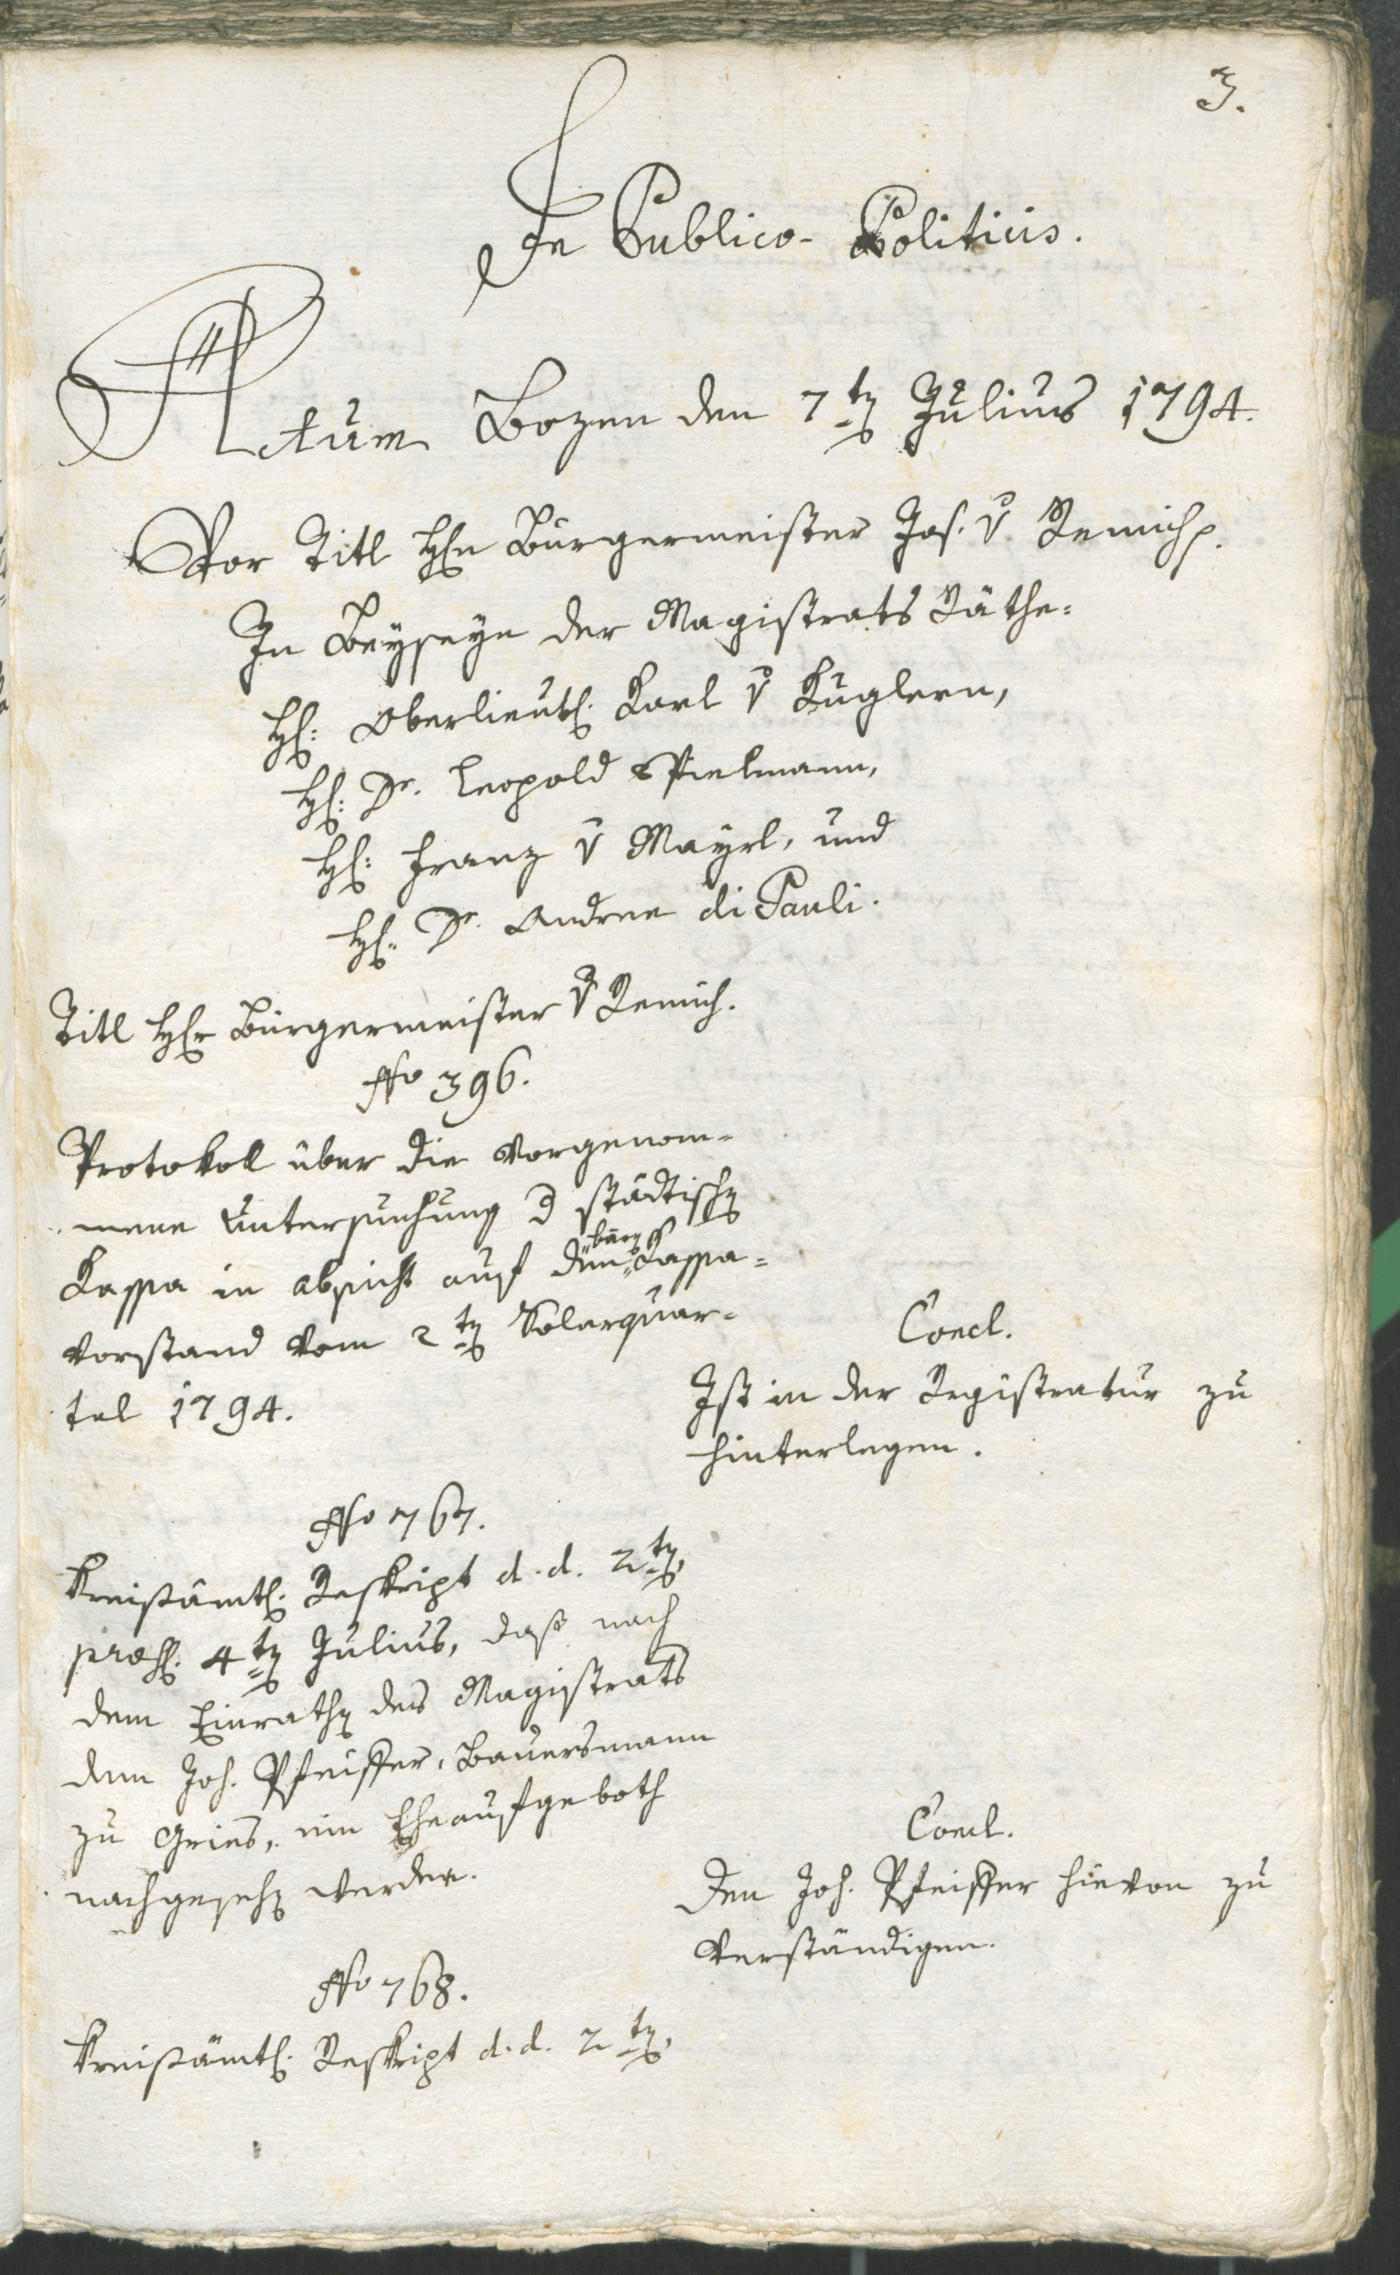 3.
In Publico-Politicis.
Actum Bozen den 7ten Julius 1794.
Vor Titl Hrn Bürgermeister Jos. v. Remich.
In Beyseyn der Magistrats Räthe:
Hr: Oberlieut. Karl v Kuglern,
Hr: Dr. Leopold Spielmann,
Hr: Franz v Mayrl, und
Hr: Dr. Andree di Pauli.
Titl Hr Bürgermeister v Remich.
No 396.
Protokol über die vorgenom-
mene Untersuchung d städtischen
Kassa in absicht auf den Kassa-
vorstand vom 2ten Solarquar-
tal 1794.
Concl.
Ist in der Registratur zu
hinterlegen.
No 767.
Kreisämtl. Reskript d. d. 2ten,
praes. 4ten Julius, daß nach
dem Einrathen des Magistrats
dem Joh. Pfeiffer, Bauersmann
zu Gries, ein Eheaufgeboth
nachgesehen werde.
Concl.
Den Joh. Pfeiffer hievon zu
verständigen.
No 768.
Kreisämtl. Reskript d. d. 2ten,